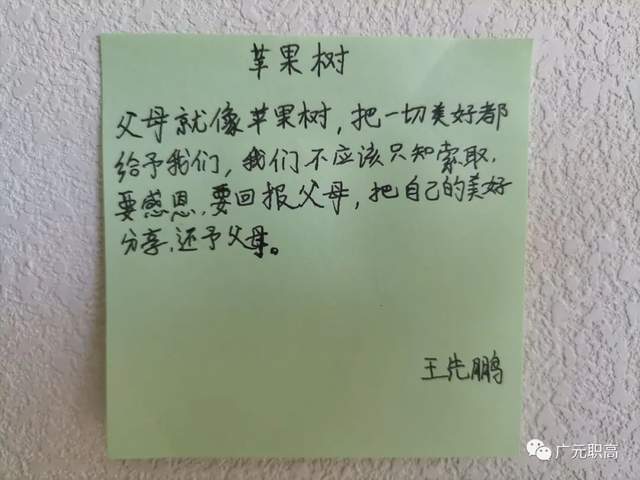 苹果树
父母就像苹果树，把一切美好都
给予我们，我们不应该只知索取，
要感恩，要回报父母，把自己的美好
分享，还予父母。
王先鹏
广元职高